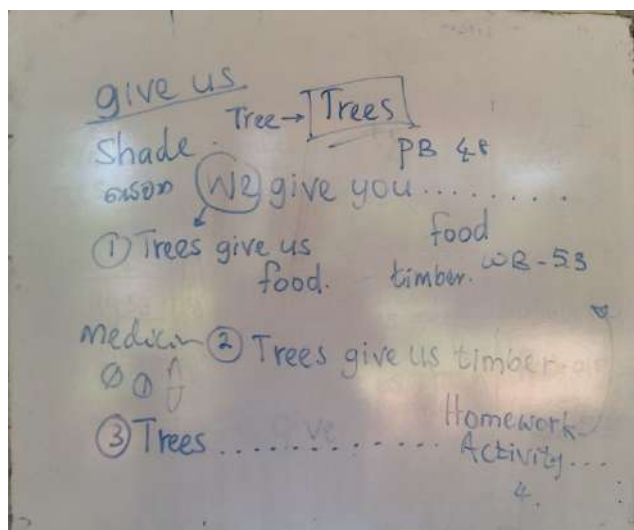 give us
Tree → Trees
Shade.
PB 48
සෙවන We give you .........
① Trees give us food
food. timber. WB - 53
medicin ② Trees give us timber
③ Trees ............
Homework
Activity ...
4.